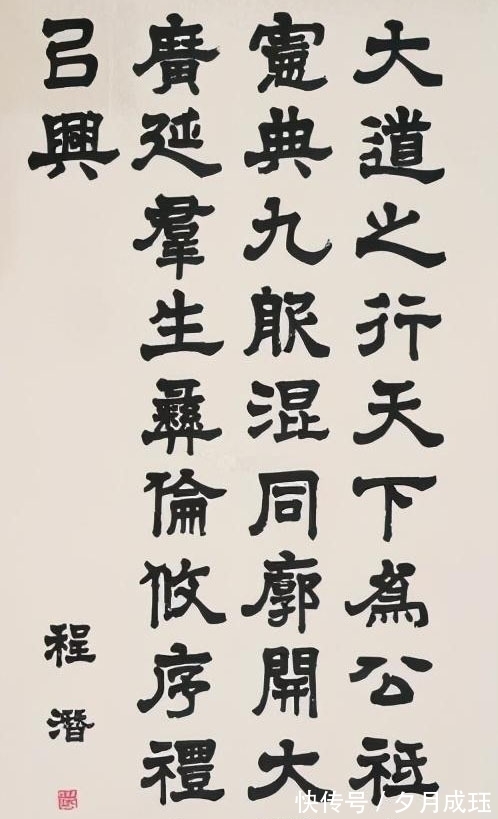 大道之行天下為公祗
憲典九服混同廓開大
廣延羣生彝倫攸序禮
㠯興
程潛
快传号/夕月成珏